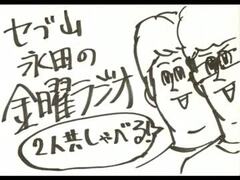 セブ山
永田の
金曜ラジオ
2人共しゃべる!?